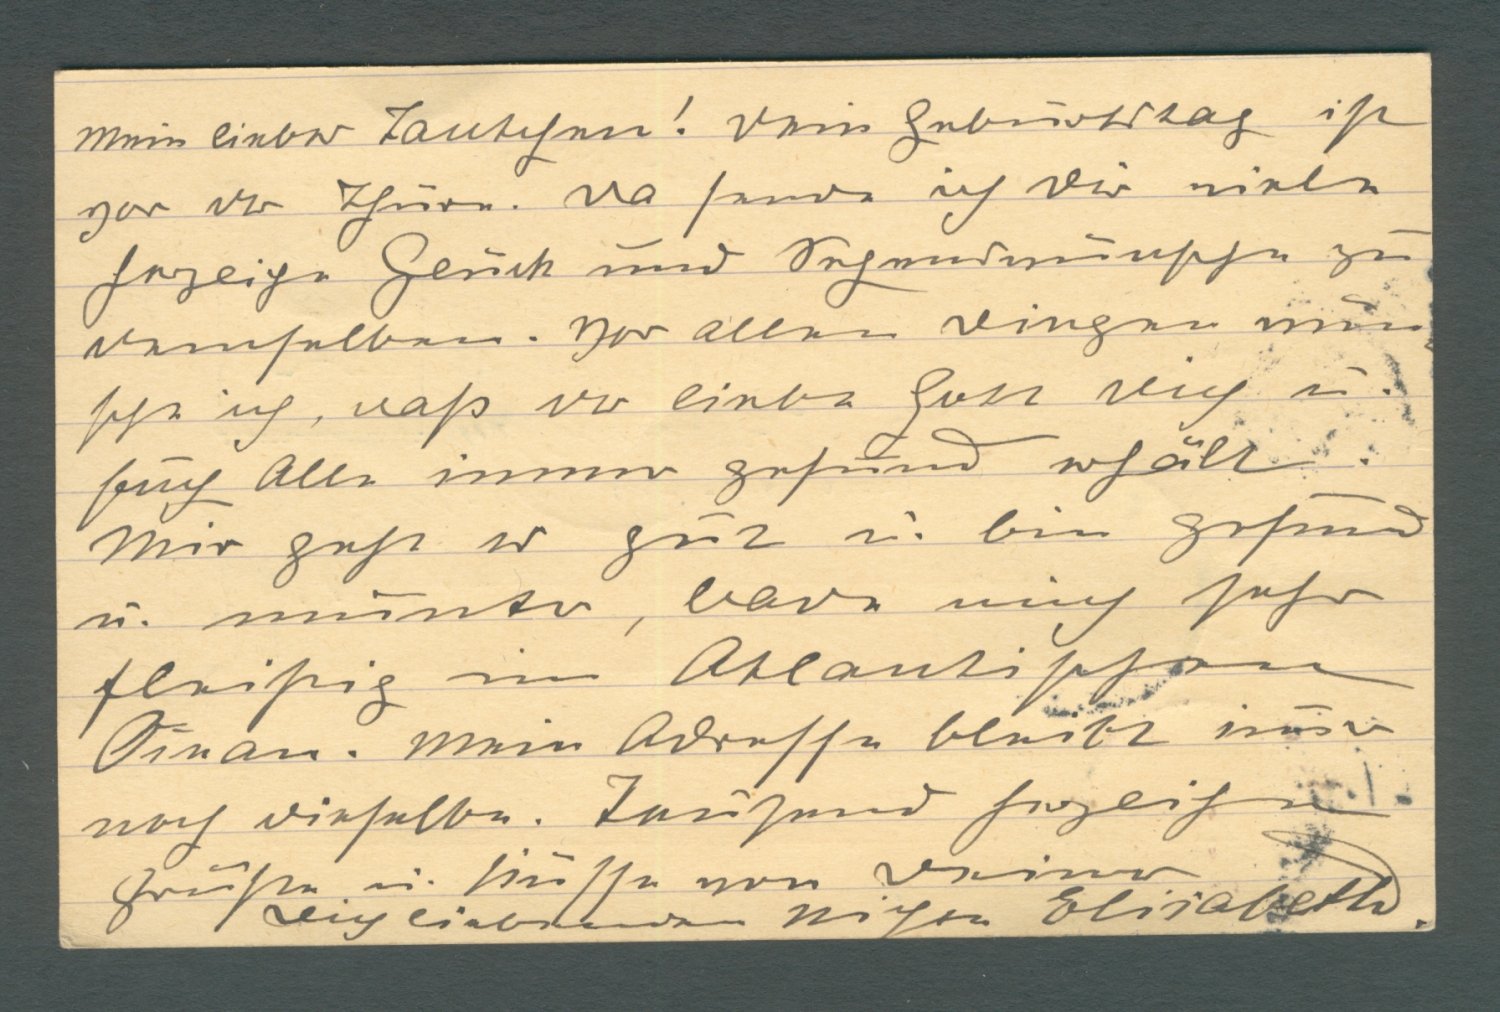 Mein liebes Tantchen! Dein Geburtstag ist
vor der Thüre. Da sende ich Dir viele
herzliche Glück und Segenswünsche zu
demselben. Vor allen Dingen wün
sche ich, daß der liebe Gott Dich u.
Euch Alle immer gesund erhält.
Mir geht es gut u. bin gesund
u. munter, bade mich sehr
fleißig im Atlantischen
Ozean. Mein Adresse bleibt immer
noch dieselbe. Tausend herzliche
Grüße u. Küsse von Deiner
Dich liebenden Nichte Elisabeth.